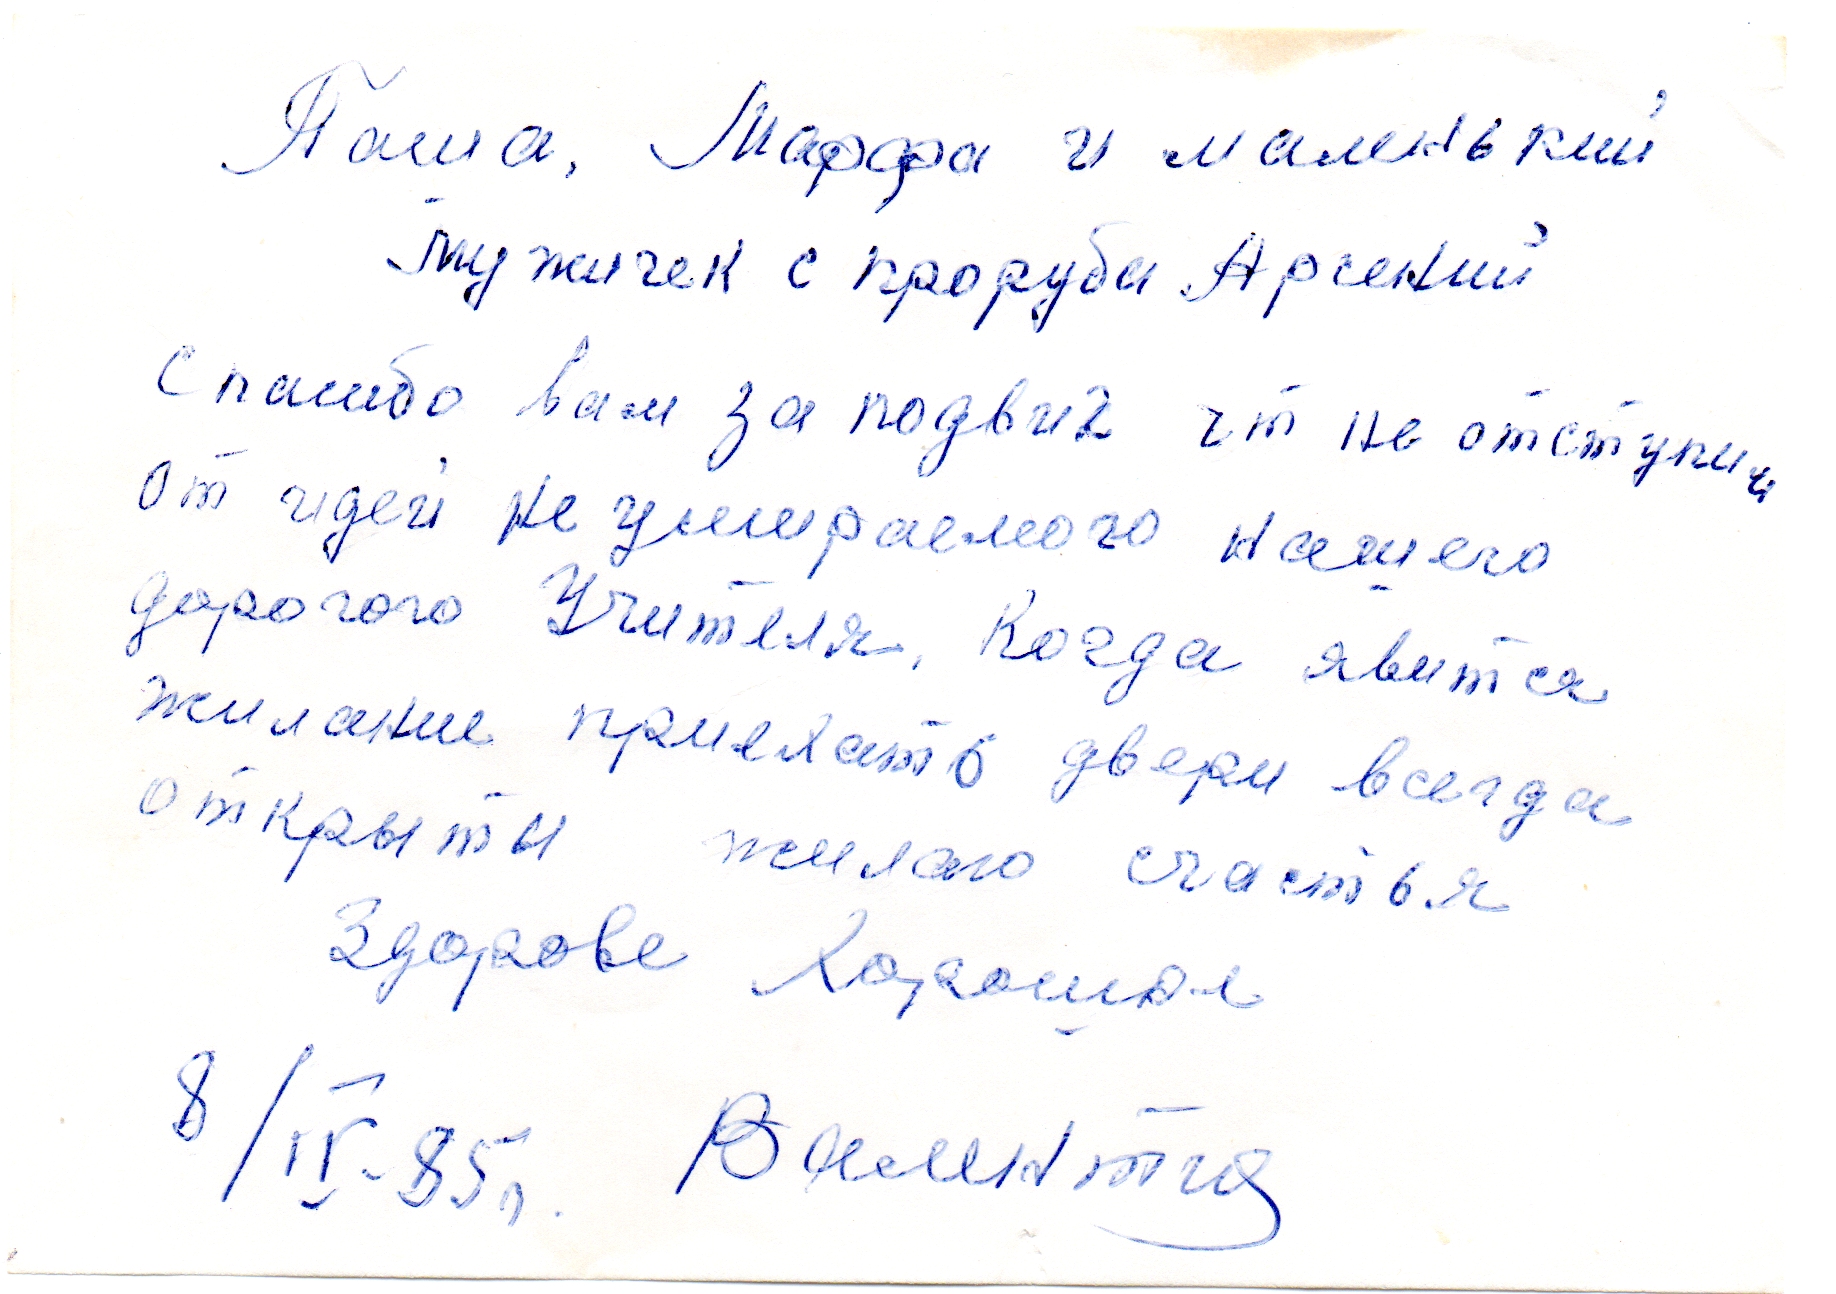 Паша, Марфа и маленький
мужичек с проруби Арсений
Спасибо вам за подвиг чт не отступили
от идей не умираемого нашего
дорогого Учителя. Когда явится
жилание приехать двери всегда
открыты жилаю счастья
Здорове Хорошия
8/IV-85г.